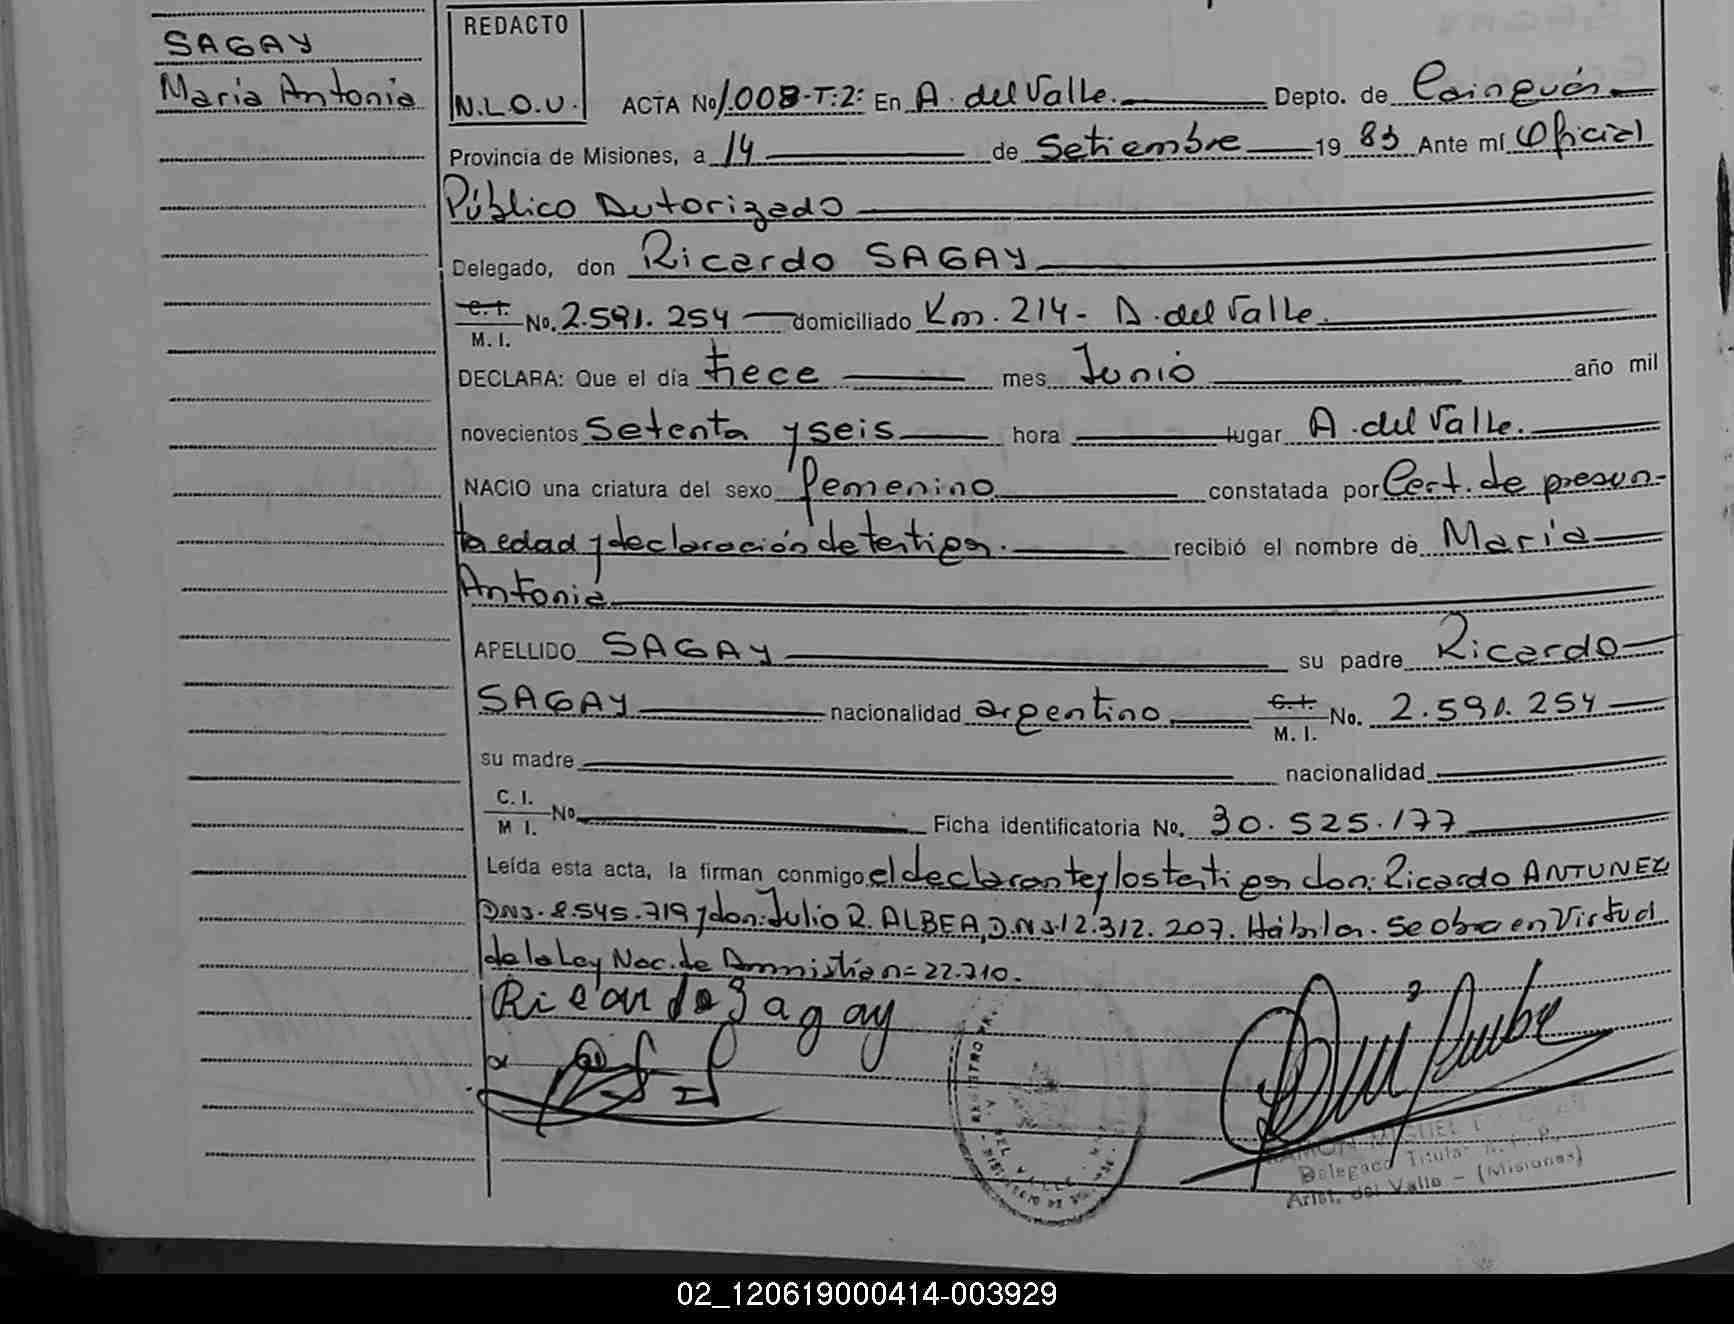 SAGAY
Maria Antonia
REDACTO
N.L.O.U.
ACTA No 1.008-T:2: En A. del Valle. Depto. de Cainguás
Provincia de Misiones, a 14 de Setiembre 19 83 Ante mí Oficial
Público Autorizado
Delegado, don Ricardo SAGAY
C.I. M.I. No. 2.591.254 domiciliado Km. 214 - A. del Valle.
DECLARA: Que el día trece mes Junio año mil
novecientos Setenta y seis hora lugar A. del Valle.
NACIO una criatura del sexo femenino constatada por Cert. de presun-
ta edad y declaración de testigos. recibió el nombre de María
Antonia
APELLIDO SAGAY su padre Ricardo
SAGAY nacionalidad argentino C.I. M.I. No. 2.591.254
su madre nacionalidad
C.I. M I. No Ficha identificatoria No. 30.525.177
Leída esta acta, la firman conmigo el declarante y los testigos don: Ricardo ANTUNEZ
DNI. 8.545.719 y don: Julio R. ALBEA, D.N.I. 12.312.207. Hábiles. Se obra en Virtud
de la Ley Nac. de Amnistía n= 22.710.
Ricardo Sagay
Delegado Titular
Arist. del Valle - (Misiones)
02_120619000414-003929